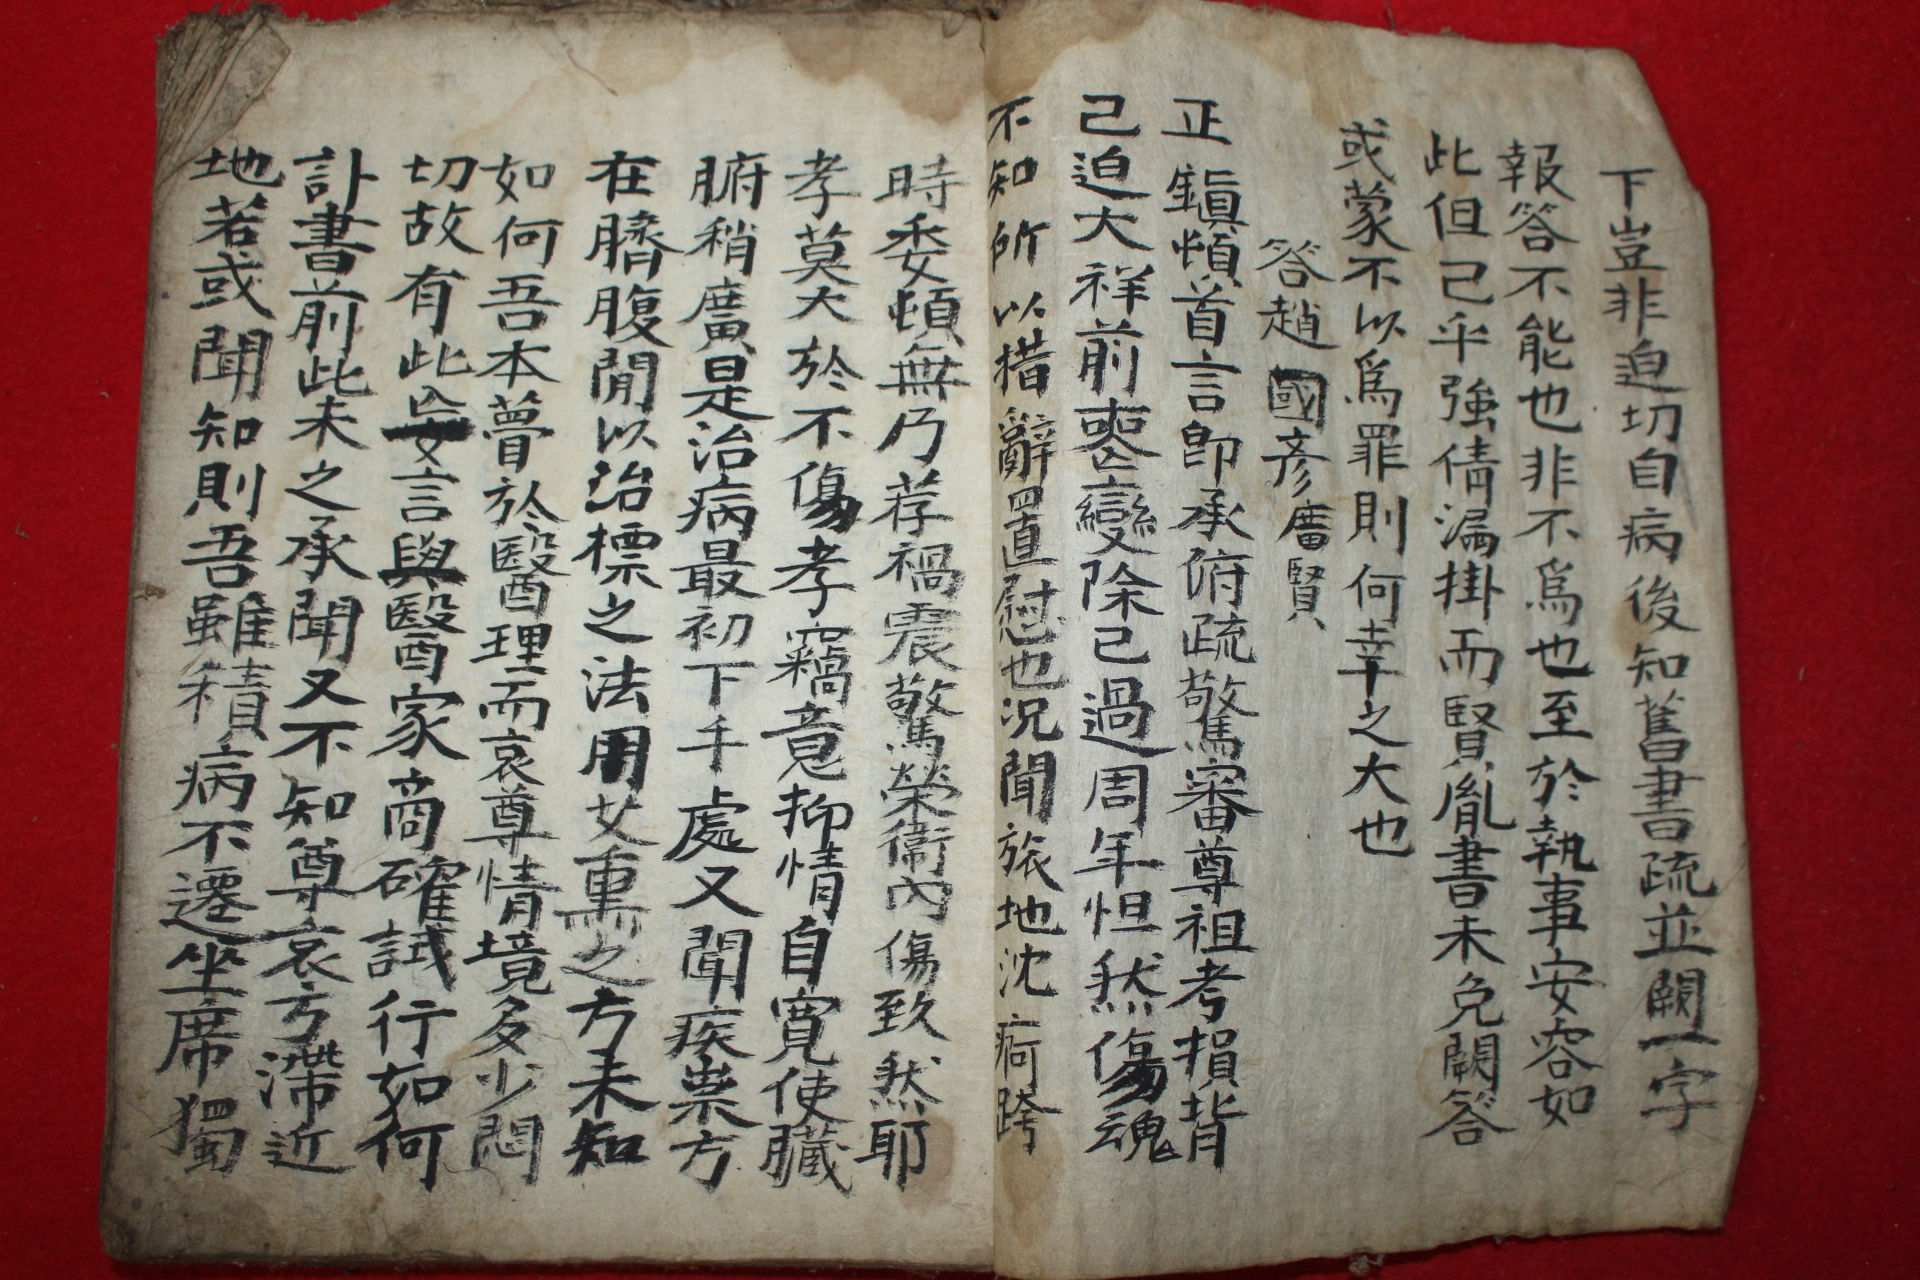 下豈非迫切自病後知舊書疏並闕一字
報答不能也非不爲也至於執事安容如
此但已乎強倩漏掛而賢胤書未免闕答
或蒙不以爲罪則何幸之大也
答趙國彦廣賢
正鎭頓首言卽承俯疏驚審尊祖考損背
己迫大祥前喪變除已過周年怛然傷魂
不知所以措辭置慰也況聞旅地沈痾跨
時委頓無乃荐禍震驚榮衛內傷致然耶
孝莫大於不傷孝竊意抑情自寬使臟
腑稍廣是治病最初下手處又聞疾祟方
在臍腹閒以治標之法用艾熏之方未知
如何吾本瞢於醫理而哀尊情境多少悶
切故有此妄言與醫家商確試行如何
訃書前此未之承聞又不知尊哀方滯近
地若或聞知則吾雖積病不遷坐席獨